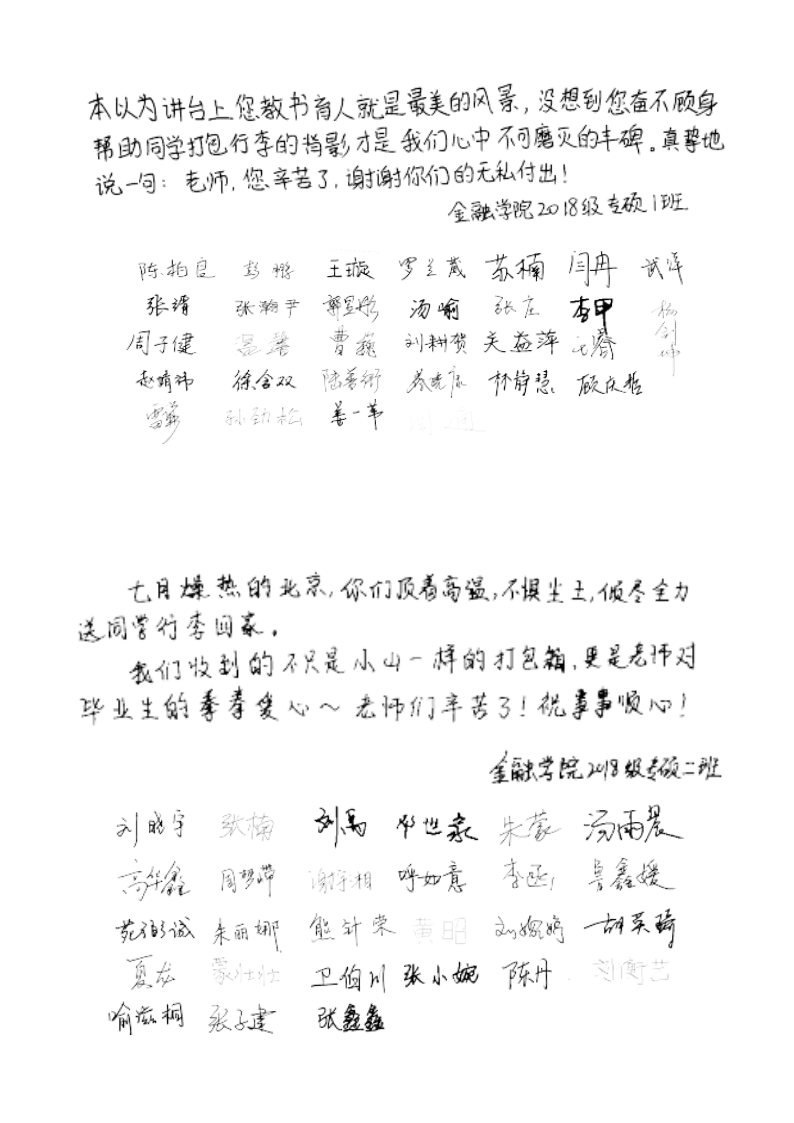 本以为讲台上您教书育人就是最美的风景，没想到您奋不顾身
帮助同学打包行李的背影才是我们心中不可磨灭的丰碑。真挚地
说一句：老师，您辛苦了，谢谢你们的无私付出！
金融学院2018级专硕1班
陈柏良 彭 王璇 罗兰葳 苏楠 闫冉 武洋
张靖 张瀚尹 郭昱彤 汤喻 张庄 李甲 杨剑帅
周子健 温馨 曹巍 刘耕贺 关益萍
赵靖祎 徐含双 陆善衍 林静慧 顾庆哲
雷蒙 孙劲松 姜一苇 周通
七月燥热的北京，你们顶着高温，不惧尘土，倾尽全力
送同学行李回家。
我们收到的不只是小山一样的打包箱，更是老师对
毕业生的拳拳爱心～老师们辛苦了！祝事事顺心！
金融学院2018级专硕二班
刘晓宇 张楠 刘禹 邓世豪 朱蒙 汤雨晨
高华鑫 周梦萍 谢宇相 呼如意 李丞 鲁鑫媛
苑弼诚 朱丽娜 熊针荣 黄昭 刘婉婷 胡英琦
夏龙 蒙壮壮 卫伯川 张小婉 陈丹 刘衡艺
喻滋桐 张子建 张鑫鑫